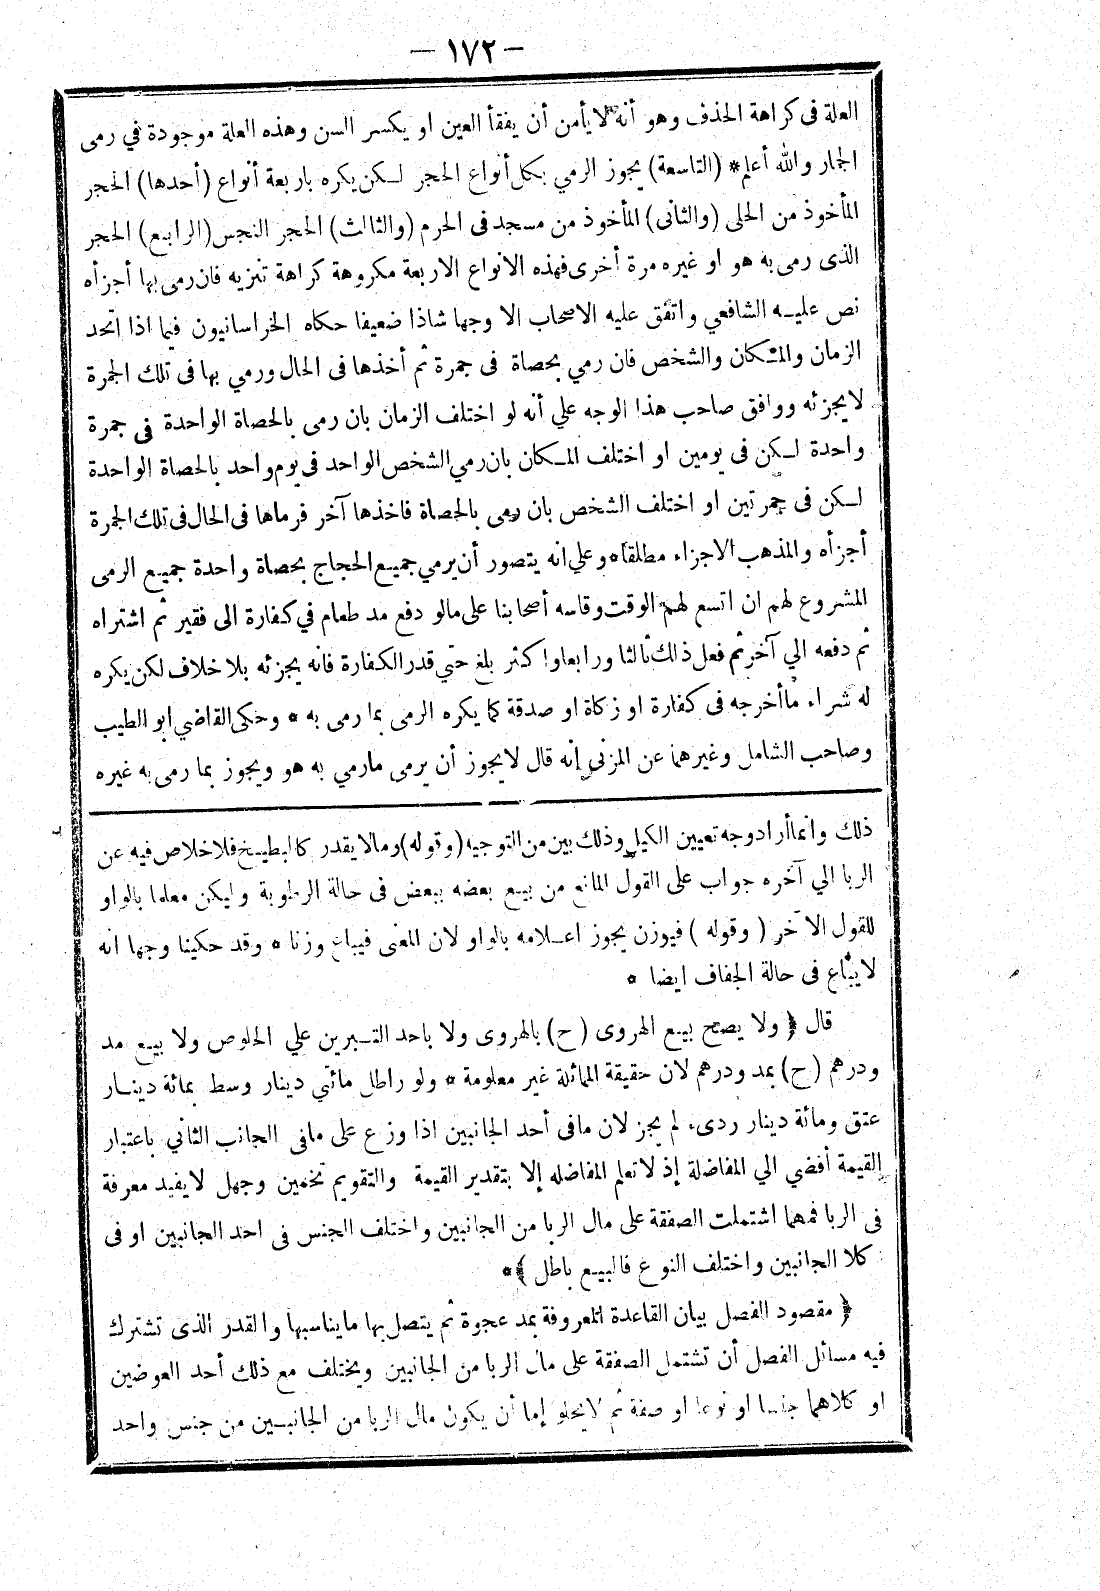 — ١٧٢ —
العلة فى كراهة الحذف وهو أنه لا يأمن أن يفقأ العين او يكسر السن وهذه العلة موجودة في رمى
الجمار والله أعلم * (التاسعة) يجوز الرمي بكل أنواع الحجر لكن يكره باربعة أنواع (أحدها) الحجر
المأخوذ من الحلى (والثانى) المأخوذ من مسجد فى الحرم (والثالث) الحجر النجس (الرابع) الحجر
الذى رمى به هو او غيره مرة أخرى فهذه الانواع الاربعة مكروهة كراهة تنزيه فان رمى بها أجزأه
نص عليه الشافعي واتفق عليه الاصحاب الا وجها شاذا ضعيفا حكاه الخراسانيون فيما اذا اتحد
الزمان والمكان والشخص فان رمي بحصاة فى جمرة ثم أخذها فى الحال ورمي بها فى تلك الجمرة
لايجزئه ووافق صاحب هذا الوجه علي أنه لو اختلف الزمان بان رمى بالحصاة الواحدة فى جمرة
واحدة لكن فى يومين او اختلف المكان بان رمي الشخص الواحد فى يوم واحد بالحصاة الواحدة
لكن فى جمرتين او اختلف الشخص بان رمى بالحصاة فاخذها آخر فرماها فى الحال فى تلك الجمرة
أجزأه والمذهب الاجزاء مطلقا * وعلي انه يتصور أن يرمي جميع الحجاج بحصاة واحدة جميع الرمى
المشروع لهم ان اتسع لهم الوقت وقاسه أصحابنا على مالو دفع مد طعام في كفارة الى فقير ثم اشتراه
ثم دفعه الي آخر ثم فعل ذلك ثالثا ورابعا واكثر بلغ حتي قدر الكفارة فانه يجزئه بلا خلاف لكن يكره
له شراء ما أخرجه فى كفارة او زكاة او صدقة كما يكره الرمى بما رمى به * وحكى القاضي ابو الطيب
وصاحب الشامل وغيرهما عن المزني إنه قال لايجوز أن يرمى مارمي به هو ويجوز بما رمى به غيره
ذلك وانما أراد وجه تعيين الكيل وذلك بين من التوجيه (وقوله) ومالا يقدر كالبطيخ فلا خلاص فيه عن
الربا الي آخره جواب على القول المانع من بيع بعضه ببعض فى حالة الرطوبة وليكن معلما بالواو
للقول الآخر (وقوله) فيوزن يجوز اعلامه بالواو لان المعنى فيباع وزنا * وقد حكينا وجها انه
لا يباع فى حالة الجفاف ايضا *
قال ﴿ ولا يصح بيع الهروى (ح) بالهروى ولا باحد التبرين علي الخلوص ولا بيع مد
ودرهم (ح) بمد ودرهم لان حقيقة المماثلة غير معلومة * ولو راطل مائتي دينار وسط بمائة دينار
عتق ومائة دينار ردىء لم يجز لان مافى أحد الجانبين اذا وزع على مافى الجانب الثاني باعتبار
القيمة أفضي الي المفاضلة إذ لا تعلم المفاضله إلا بتقدير القيمة والتقويم تخمين وجهل لايفيد معرفة
فى الربا فمهما اشتملت الصفقة على مال الربا من الجانبين واختلف الجنس فى احد الجانبين او فى
كلا الجانبين واختلف النوع فالبيع باطل ﴾ *
﴿ مقصود الفصل بيان القاعدة المعروفة بمد عجوة ثم يتصل بها مايناسبها والقدر الذى تشترك
فيه مسائل الفصل أن تشتمل الصفقة على مال الربا من الجانبين ويختلف مع ذلك أحد العوضين
او كلاهما جنسا او نوعا او صفة ثم لا يخلو إما أن يكون مال الربا من الجانبين من جنس واحد